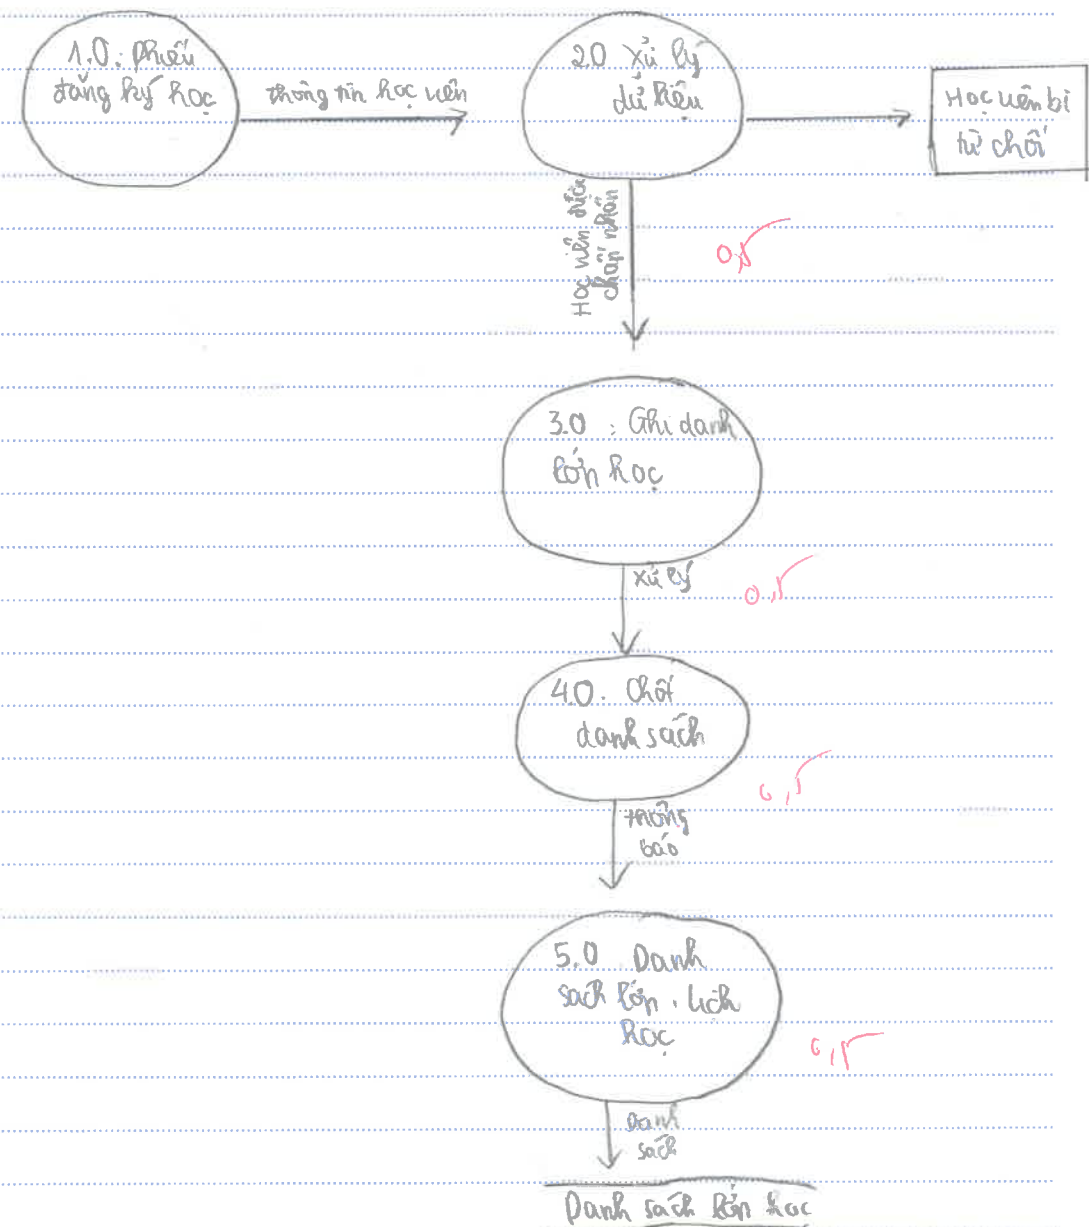 1.0: Phiếu
đăng ký học
thông tin học viên
2.0 Xử lý
dữ liệu
Học viên bị
từ chối
Học viên được
chấp nhận
0,5
3.0 : Ghi danh
lớp học
xử lý
0,5
4.0. Chốt
danh sách
0,5
thông
báo
5.0 Danh
sách lớp, lịch
học
0,5
Danh
sách
Danh sách lớp học